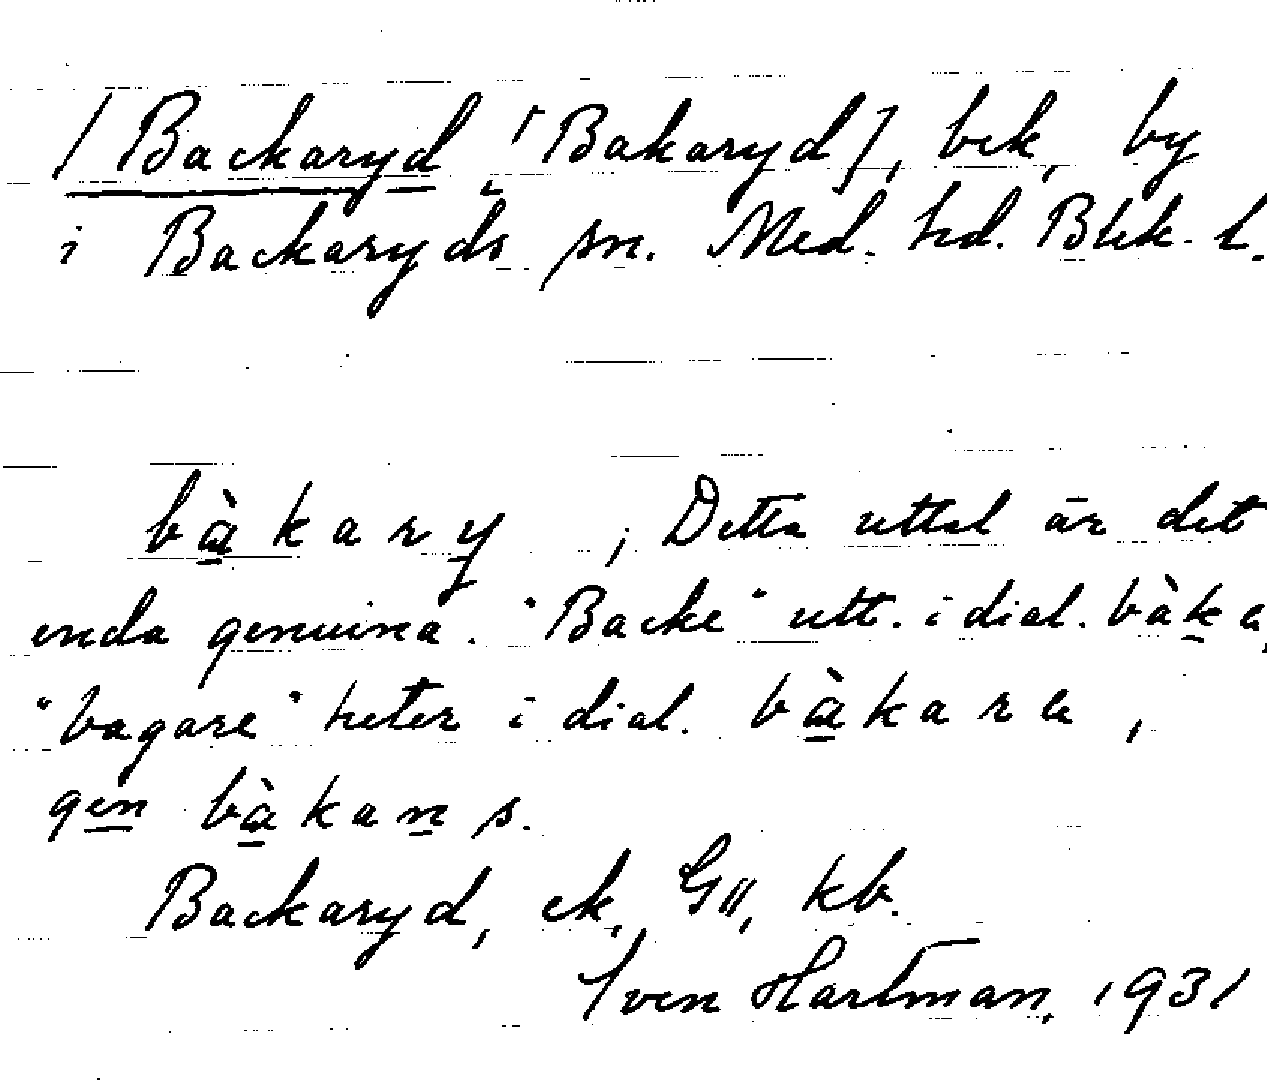 / Backaryd, [Bakaryd], bek, by
i Backaryds sn. Med. hd. Blek. l.
bàkary ; Detta uttal är det
enda genuina. "Backe" utt. i dial. bàka,
"bagare" heter i dial. bàkara,
gen bàkans.
Backaryd, ek, G11, kb.
Sven Hartman, 1931